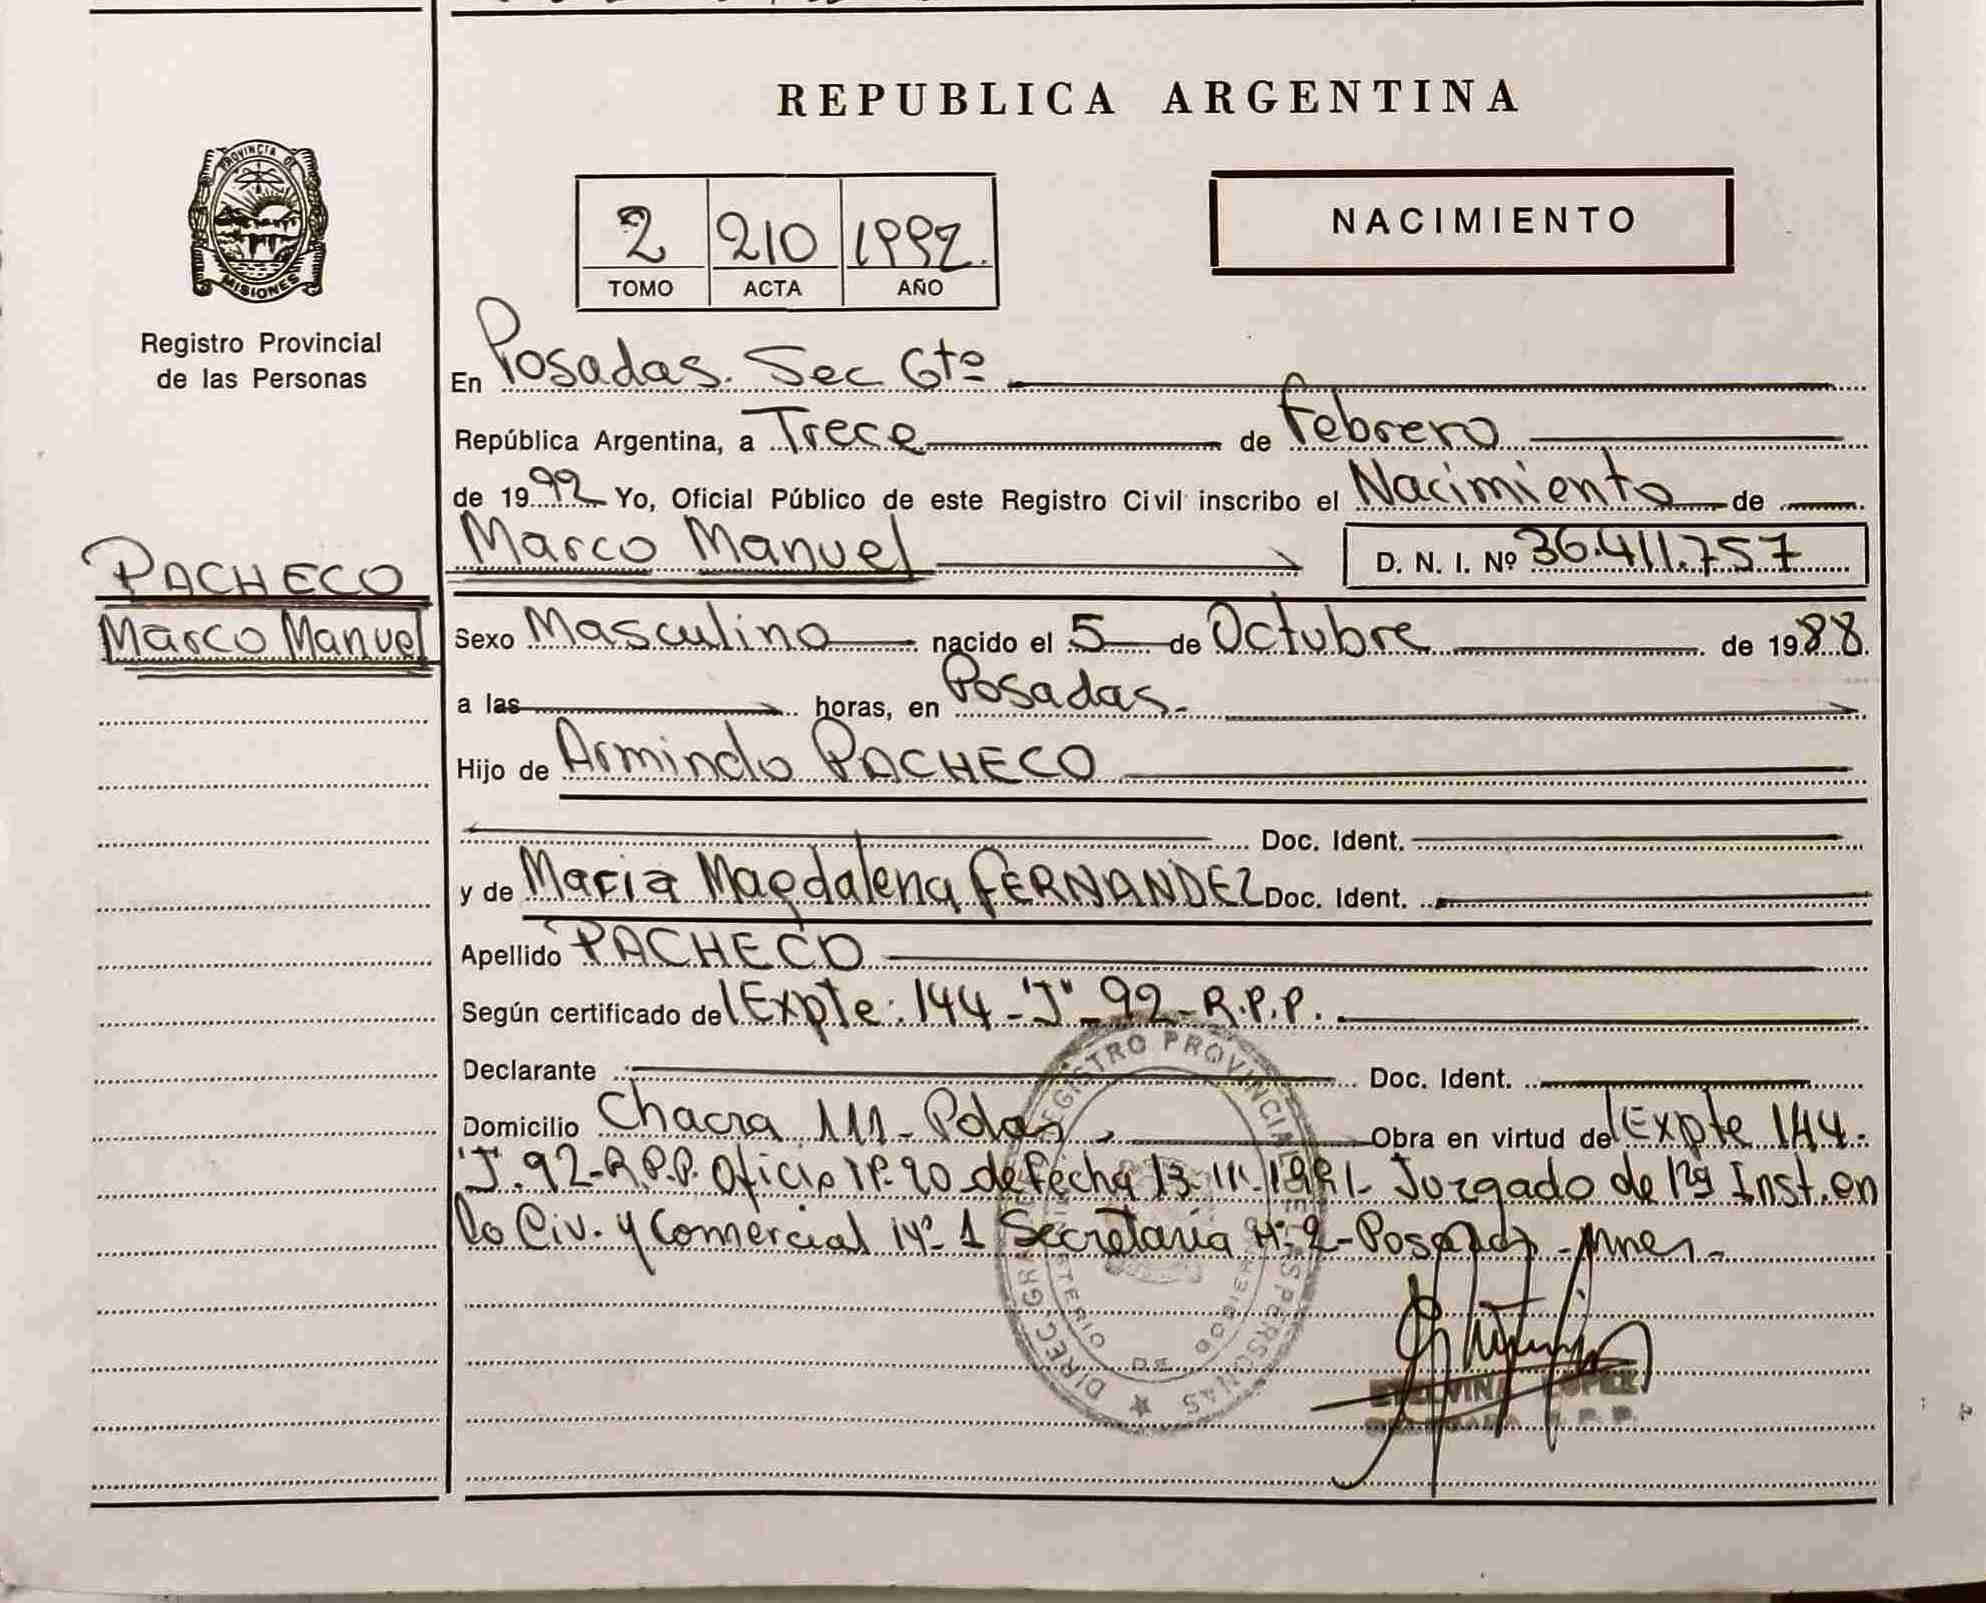 REPUBLICA ARGENTINA
PROVINCIA DE MISIONES
Registro Provincial
de las Personas
2 210 1992.
TOMO ACTA AÑO
NACIMIENTO
En Posadas. Sec 6ta
República Argentina, a Trece de Febrero
de 1992 Yo, Oficial Público de este Registro Civil inscribo el Nacimiento de
Marco Manuel D. N. I. Nº 36.411.757
PACHECO
Marco Manuel
Sexo Masculino nacido el 5 de Octubre de 1988.
a las horas, en Posadas.-
Hijo de Armindo PACHECO
Doc. Ident.
y de Maria Magdalena FERNANDEZ Doc. Ident.
Apellido PACHECO
Según certificado del Expte: 144-"J"-92-R.P.P.
Declarante Doc. Ident.
Domicilio Chacra 111- Pdas, Obra en virtud del Expte 144-
"J".92-R.P.P. Oficio Nº 20 de fecha 13.11.1991- Juzgado de 1ra Inst. en
lo Civ. y Comercial Nº 1 Secretaría Nº 2-Posadas -Mnes.-
DIREC. GRAL. REGISTRO PROVINCIAL DE LAS PERSONAS
MINISTERIO DE GOBIERNO
ETELVINA LOPEZ
R. P. P.